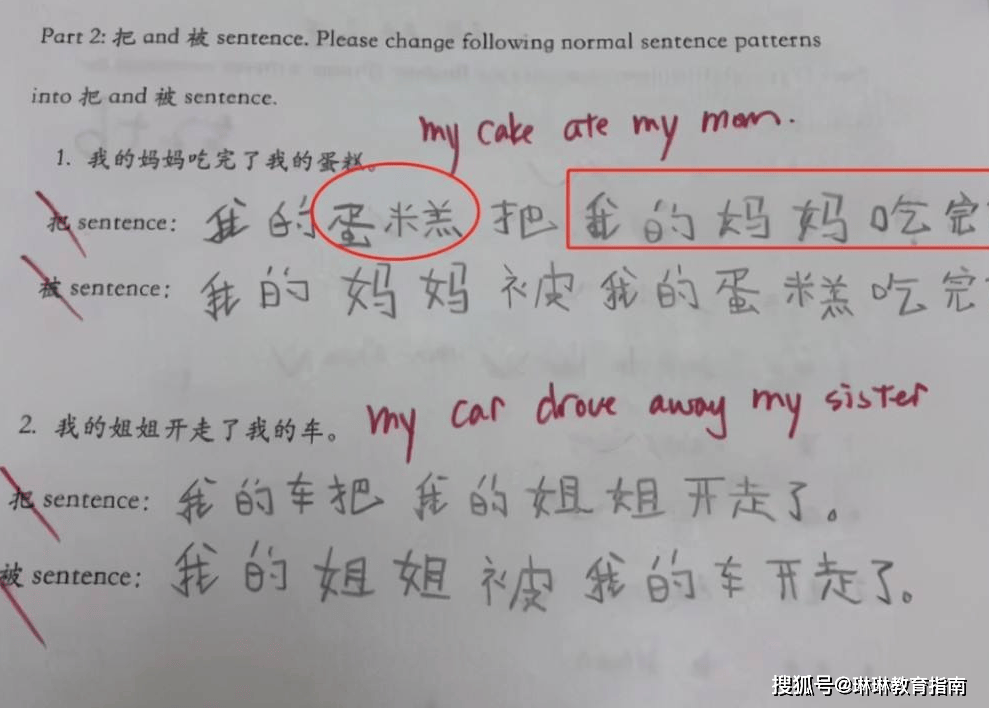 Part 2: 把 and 被 sentence. Please change following normal sentence patterns
into 把 and 被 sentence.
my cake ate my mom.
1. 我的妈妈吃完了我的蛋糕。
把 sentence: 我的蛋糕把我的妈妈吃完
被 sentence: 我的妈妈被我的蛋糕吃完
my car drove away my sister
2. 我的姐姐开走了我的车。
把 sentence: 我的车把我的姐姐开走了。
被 sentence: 我的姐姐被我的车开走了。
搜狐号@琳琳教育指南